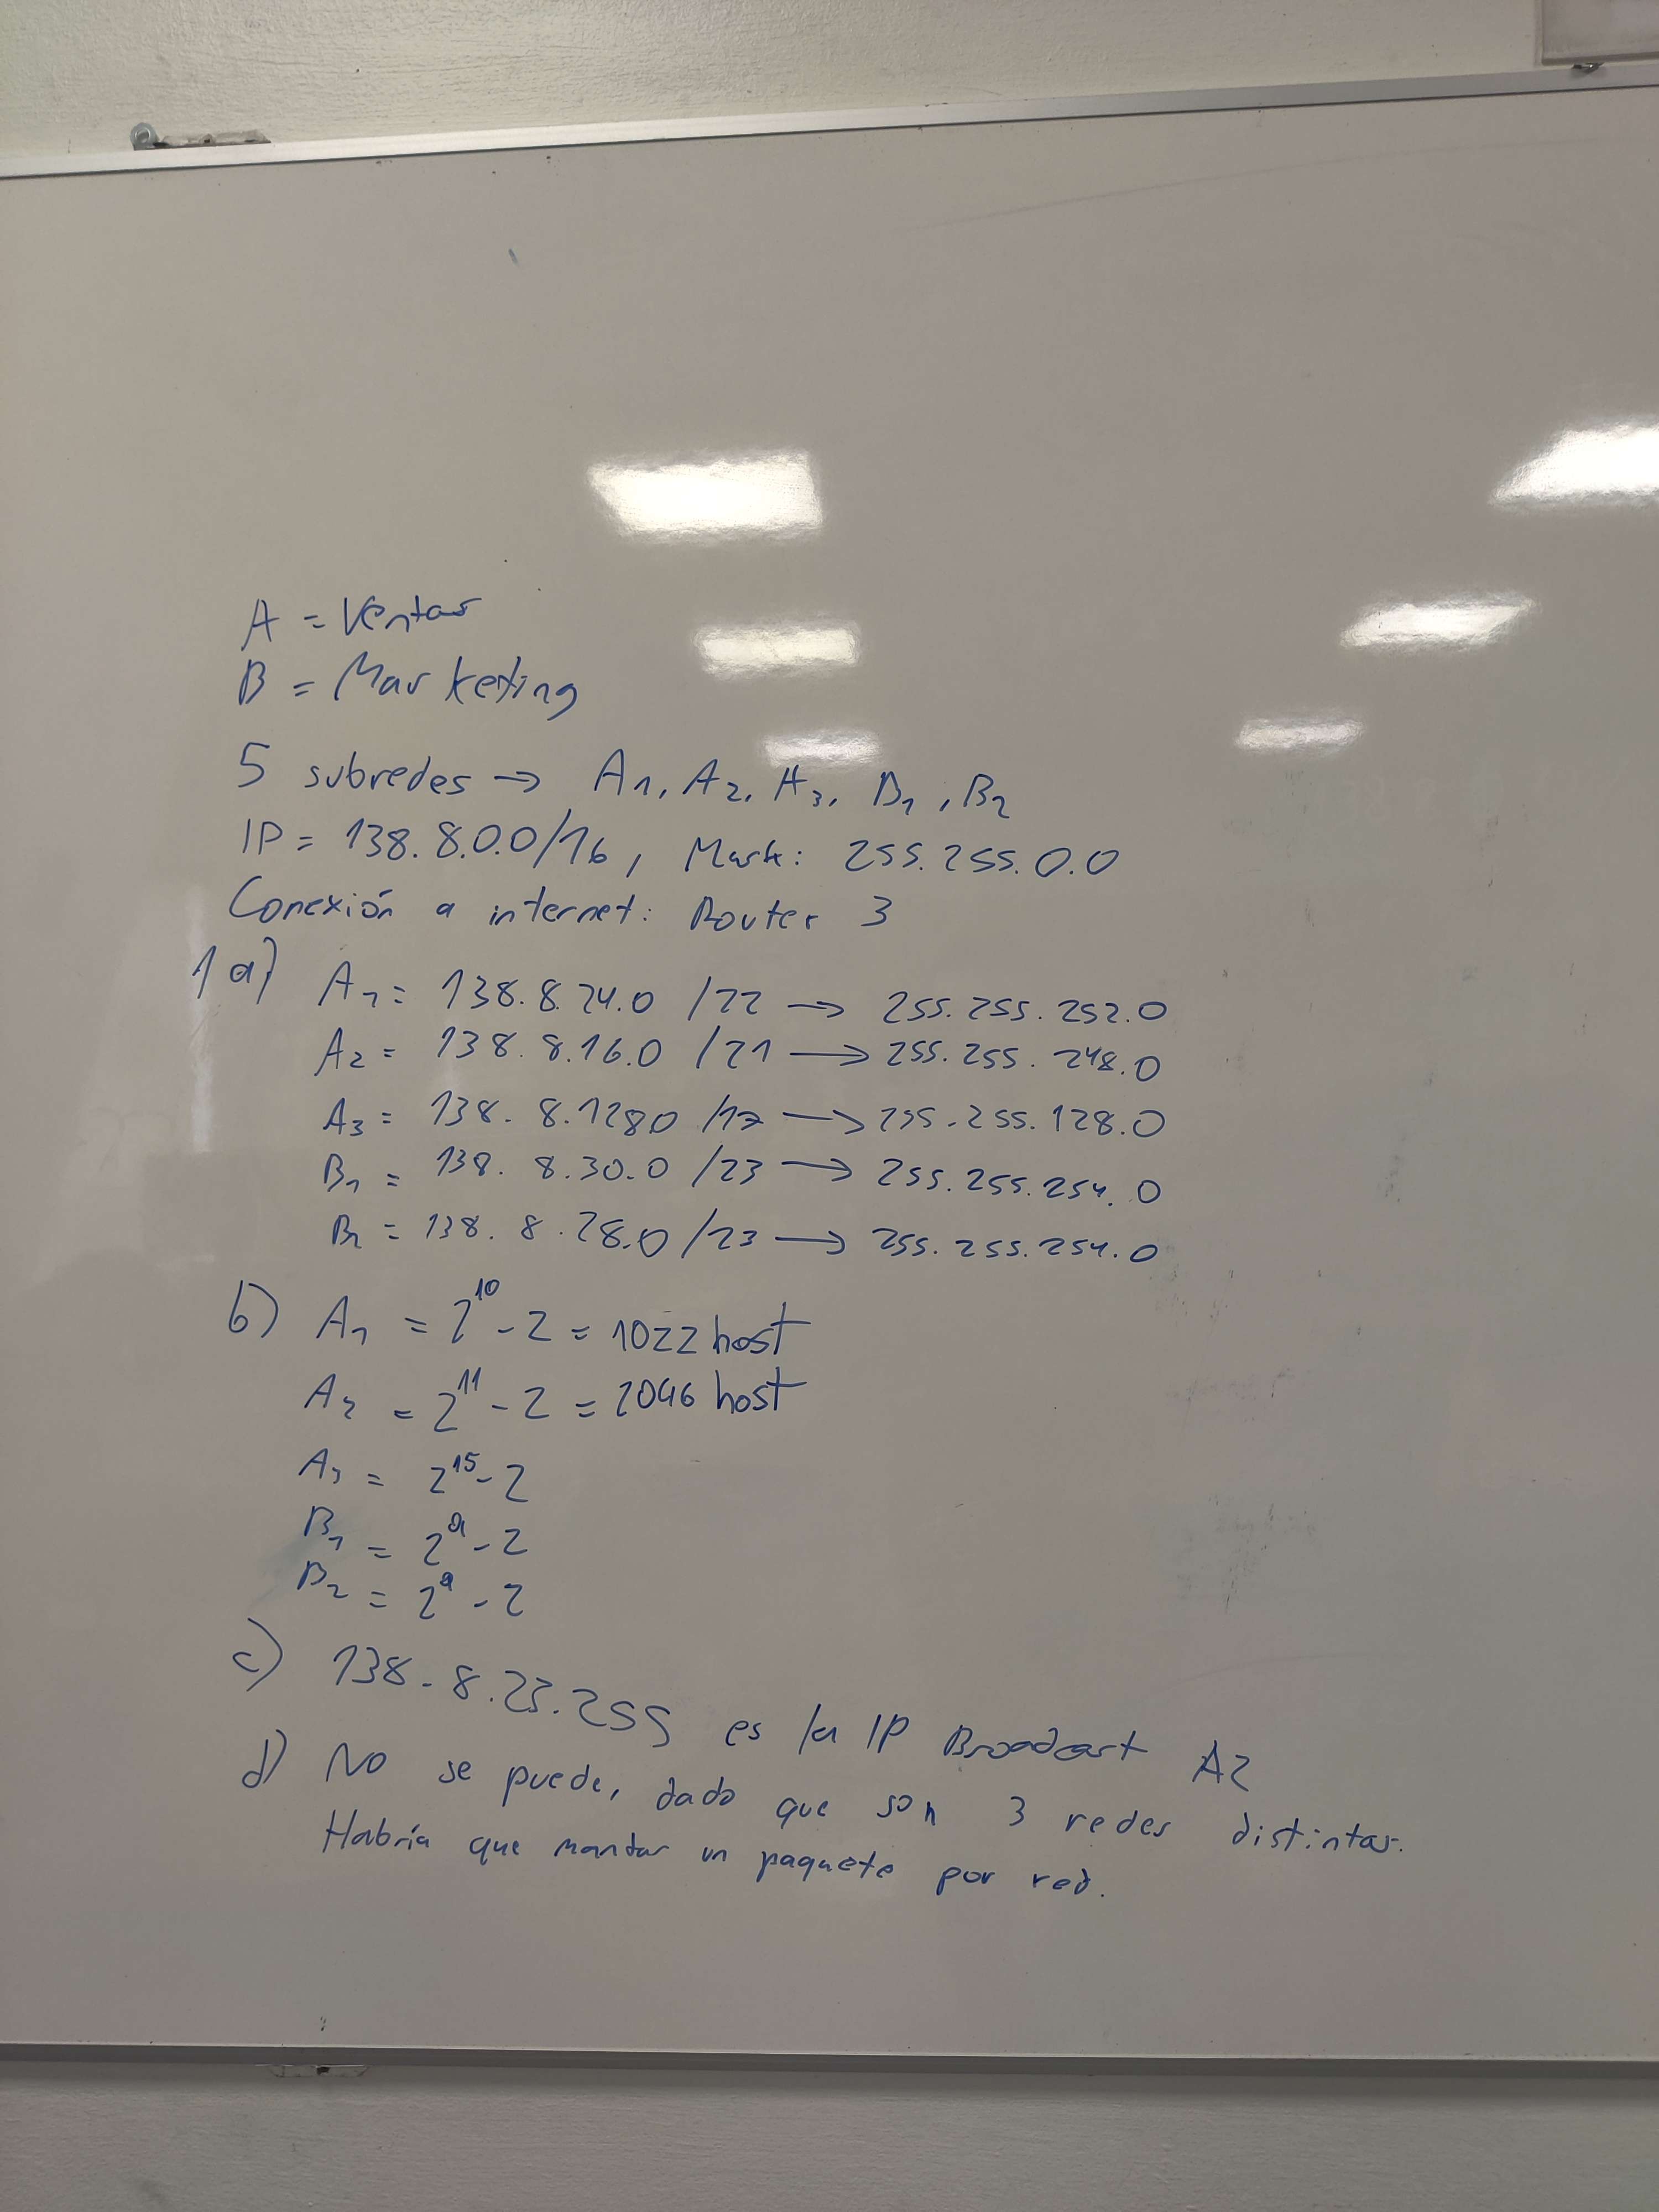 A = Ventas
B = Marketing
5 subredes → A₁, A₂, A₃, B₁, B₂
IP = 138.8.0.0/16, Mask: 255.255.0.0
Conexión a internet: Router 3
1a) A₁ = 138.8.24.0 /22 → 255.255.252.0
A₂ = 138.8.16.0 /21 → 255.255.248.0
A₃ = 138.8.128.0 /17 → 255.255.128.0
B₁ = 138.8.30.0 /23 → 255.255.254.0
B₂ = 138.8.28.0 /23 → 255.255.254.0
b) A₁ = 2¹⁰ - 2 = 1022 host
A₂ = 2¹¹ - 2 = 2046 host
A₃ = 2¹⁵ - 2
B₁ = 2⁹ - 2
B₂ = 2⁹ - 2
c) 138.8.23.255 es la IP Broadcast A2
d) No se puede, dado que son 3 redes distintas.
Habría que mandar un paquete por red.